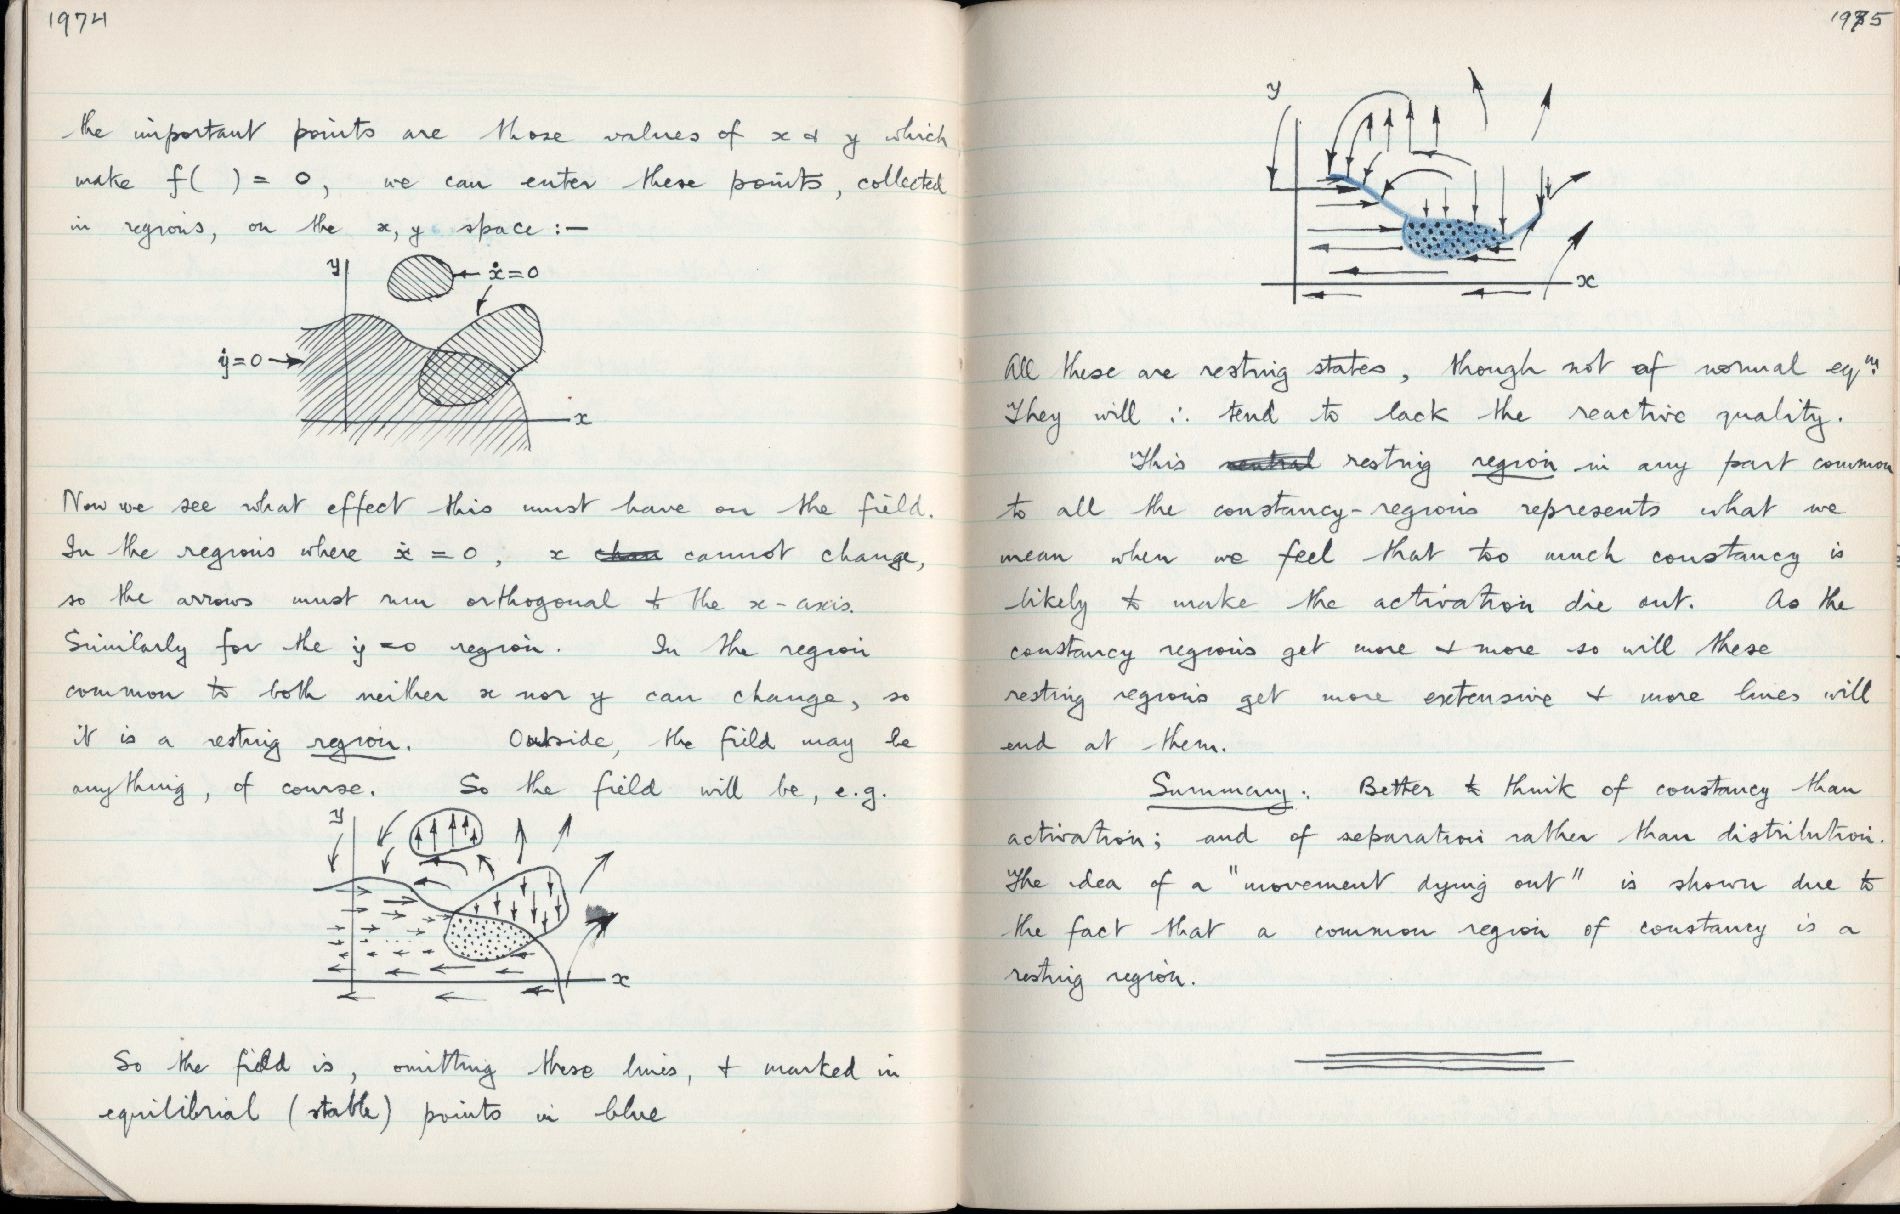 1974
the important points are those values of x & y which
make f( ) = 0, we can enter these points, collected
in regions, on the x, y space :—
y
ẋ=0
ẏ=0
x
Now we see what effect this must have on the field.
In the regions where ẋ = 0, x chan cannot change,
so the arrows must run orthogonal to the x-axis.
Similarly for the ẏ=0 region. In the region
common to both neither x nor y can change, so
it is a resting region. Outside, the field may be
anything, of course. So the field will be, e.g.
y
x
So the field is, omitting these lines, & marked in
equilibrial (stable) points in blue
1975
y
x
All these are resting states, though not of normal eqm.
They will ∴ tend to lack the reactive quality.
This neutral resting region in any part common
to all the constancy-regions represents what we
mean when we feel that too much constancy is
likely to make the activation die out. As the
constancy regions get more & more so will these
resting regions get more extensive & more lines will
end at them.
Summary: Better to think of constancy than
activation; and of separation rather than distribution.
The idea of a "movement dying out" is shown due to
the fact that a common region of constancy is a
resting region.